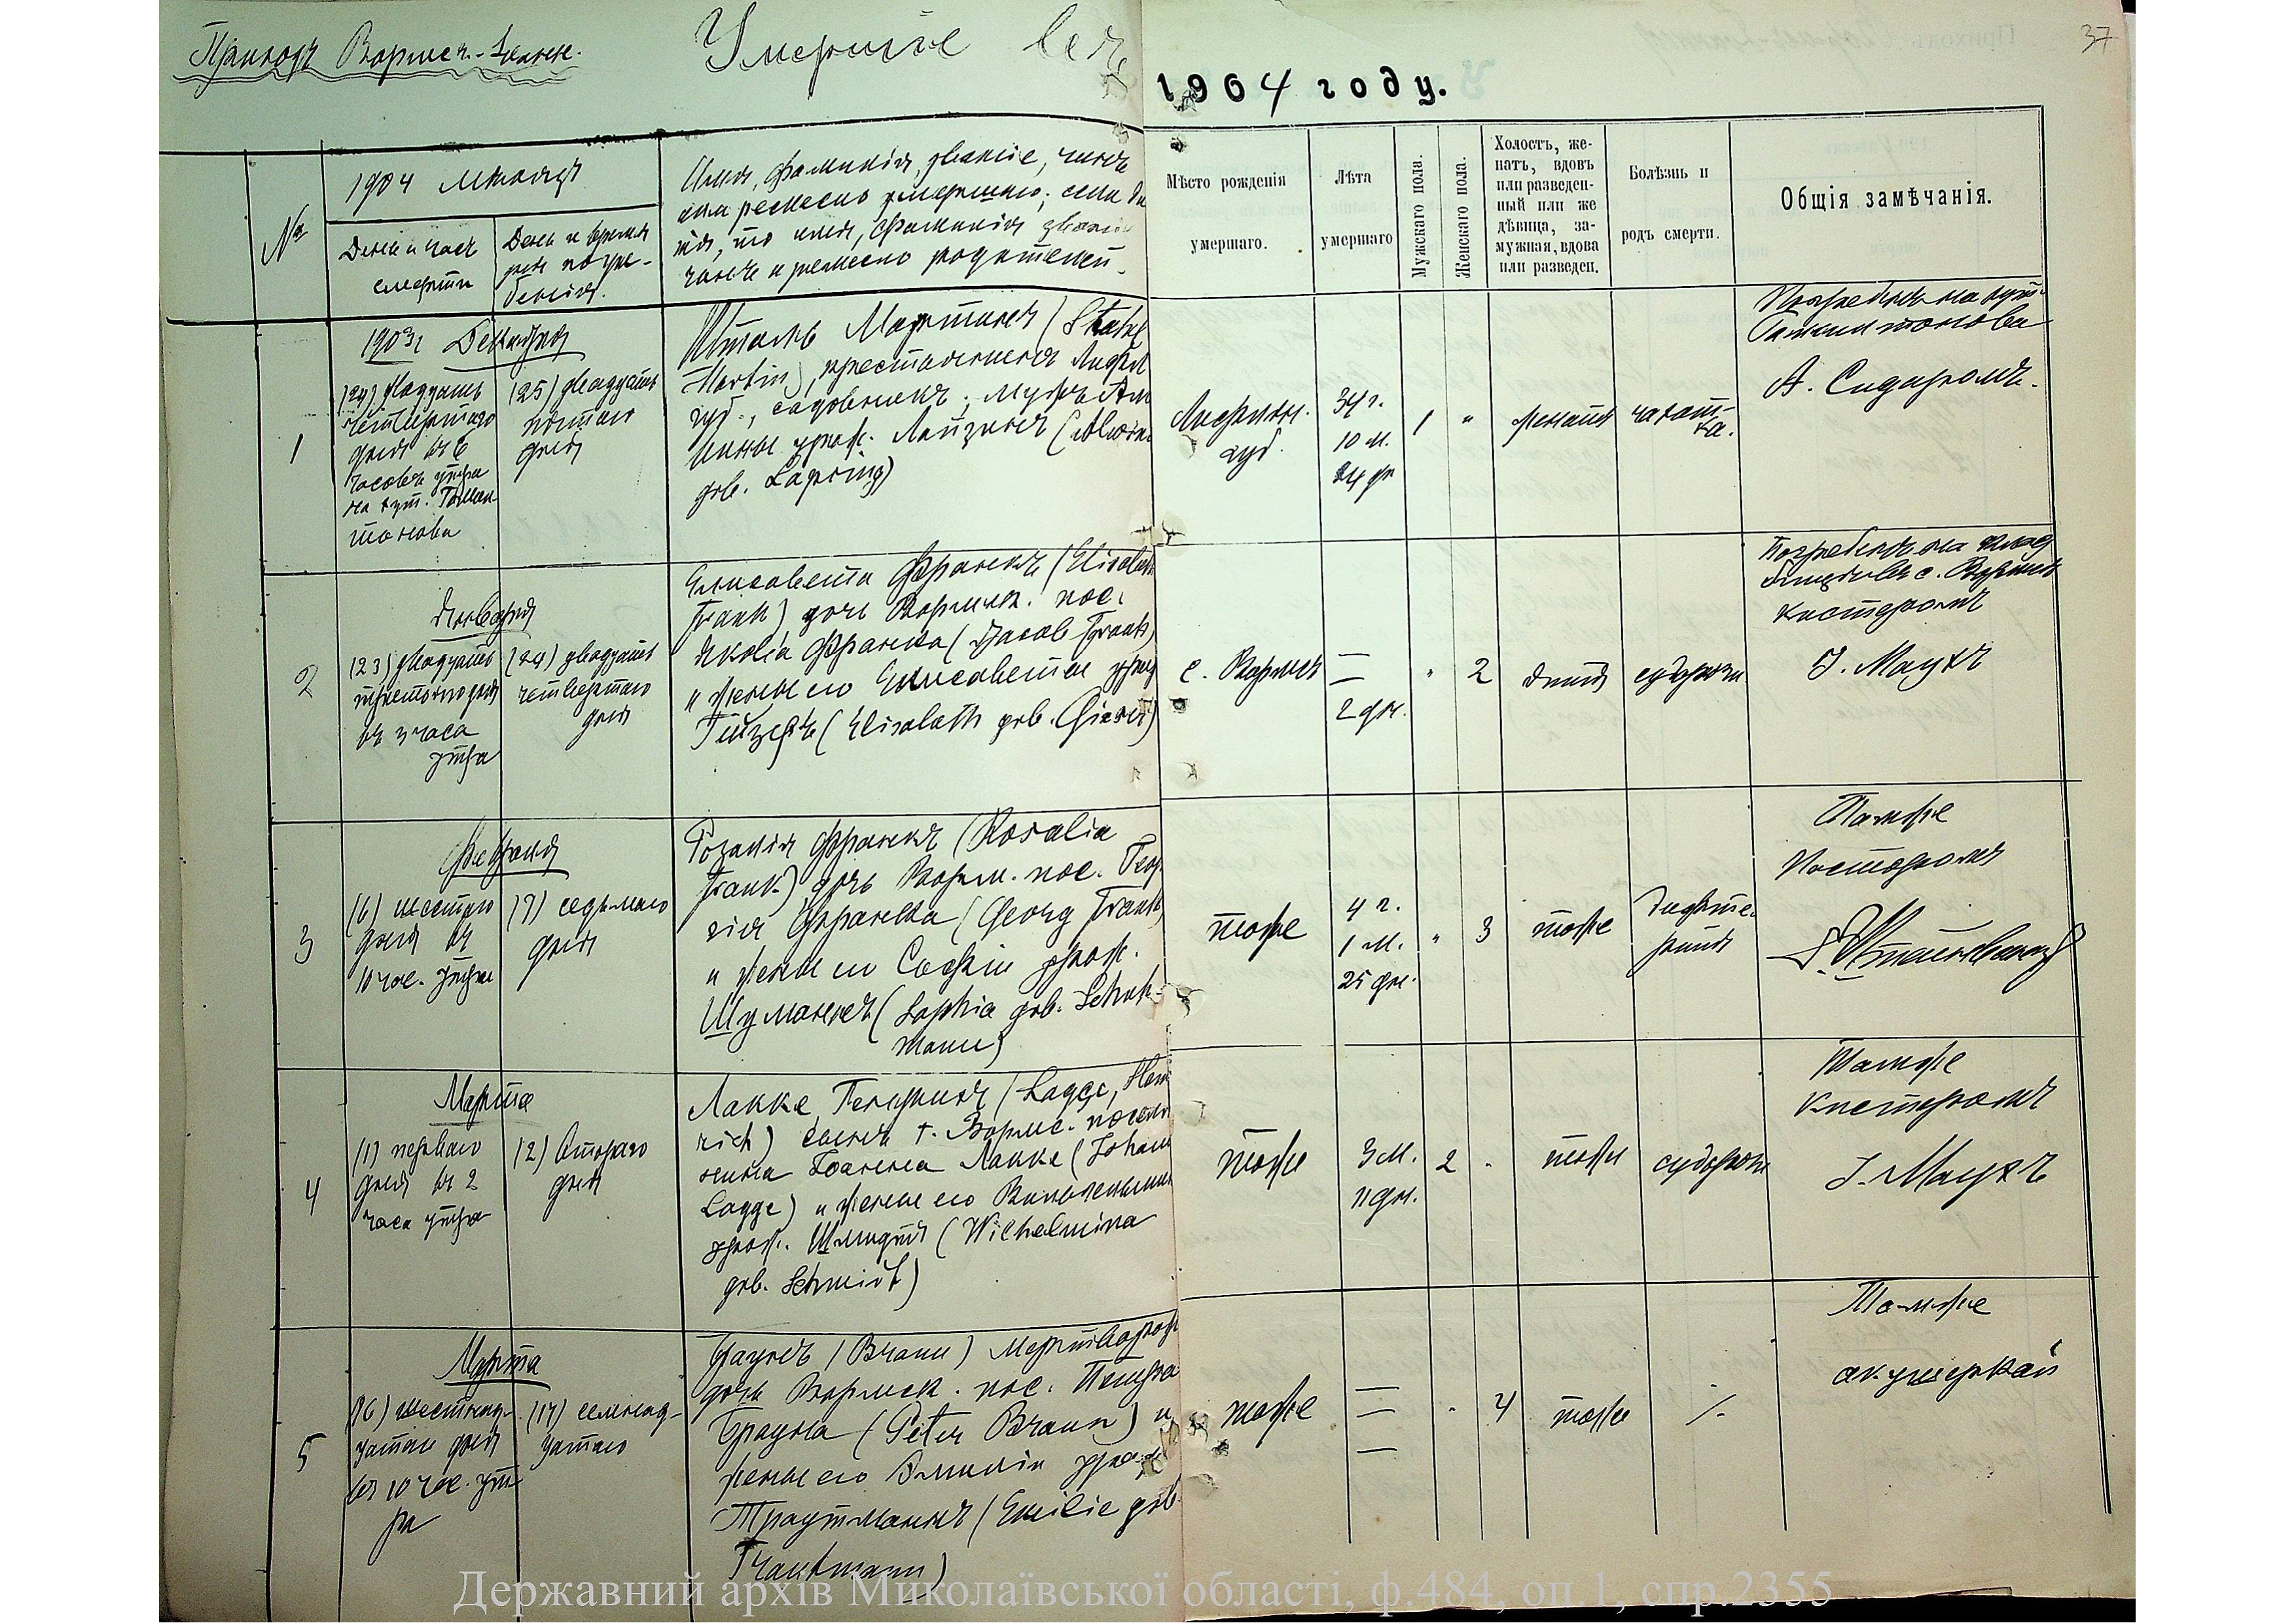 Приходъ Вормсъ-
Умершіе въ
1904 году.
37
№
1904 мѣсяцъ
День и часъ
смерти
День и время
погре-
бенія.
Имя, фамилія, званіе, чинъ
или ремесло умершаго; если ди
тя, то имя, фамилія, званіе
чинъ и ремесло родителей.
Мѣсто рожденія
умершаго.
Лѣта
умершаго
Мужскаго пола.
Женскаго пола.
Холостъ, же-
натъ, вдовъ
или разведен-
ный или же
дѣвица, за-
мужная, вдова
или разведен.
Болѣзнь и
родъ смерти.
Общія замѣчанія.
1
1903 г. Декабря
(24) двадцать
четвертаго
дня въ 6
часовъ утра
на хут.
(25) двадцать
пятаго
дня
Шталь Мартинъ (Stahl
Martin), крестьянинъ Лифл
губ., садовникъ, мужъ
урож.
geb.
Лифлян.
губ.
34 г.
10 м.
24 дн
1
"
женатъ
чахот-
ка.
Погребенъ на хут.
А. Сидоромъ.
2
Января
(23) двадцать
третьяго дня
въ 3 часа
утра
(24) двадцать
четвертаго
дня
Елисавета Франкъ (Elisabeth
Frank) дочь Вормск. пос.
Якова Франка (Jacob Frank)
и жены его Елисаветы урож
(Elisabeth geb.
с. Вормсъ
—
—
2 дн.
"
2
дитя
судороги
Погребена на клад
с. Вормсъ
кистеромъ
І. Маухъ
3
Февраля
(6) шестого
дня въ
10 час. утра
(7) седьмаго
дня
Розалія Франкъ (Rosalia
Frank) дочь Ворм. пос. Геор
гія Франка (Georg Frank)
и жены его Софіи урож.
Шуманнъ (Sophia geb. Schuh-
mann)
тоже
4 г.
1 м.
25 дн.
"
3
тоже
дифте-
ритъ
Тамже
Пасторомъ
4
Марта
(1) перваго
дня въ 2
часа утра
(2) Втораго
дня
Лакке, Генрихъ (Lagge, Hein
rich) сынъ †. Вормс. поселя
нина Іоганна Лакке (Johann
Lagge) и жены его Вильгельмины
урож. Шмидтъ (Wilhelmina
geb. Schmidt)
тоже
3 м.
11 дн.
2
"
тоже
судороги
Тамже
кистеромъ
І. Маухъ
5
Марта
(16) шестнад-
цатаго дня
въ 10 час. ут-
ра
(17) семнад-
цатаго
Браунъ (Braun) мертворож
дочь Вормск. пос. Петра
Брауна (Peter Braun) и
жены его Эмиліи урож
Траутманнъ (Emilie geb.
Trautmann)
тоже
—
—
—
"
4
тоже
Тамже
акушеркой
Державний архів Миколаївської області, ф.484, оп.1, спр.2355